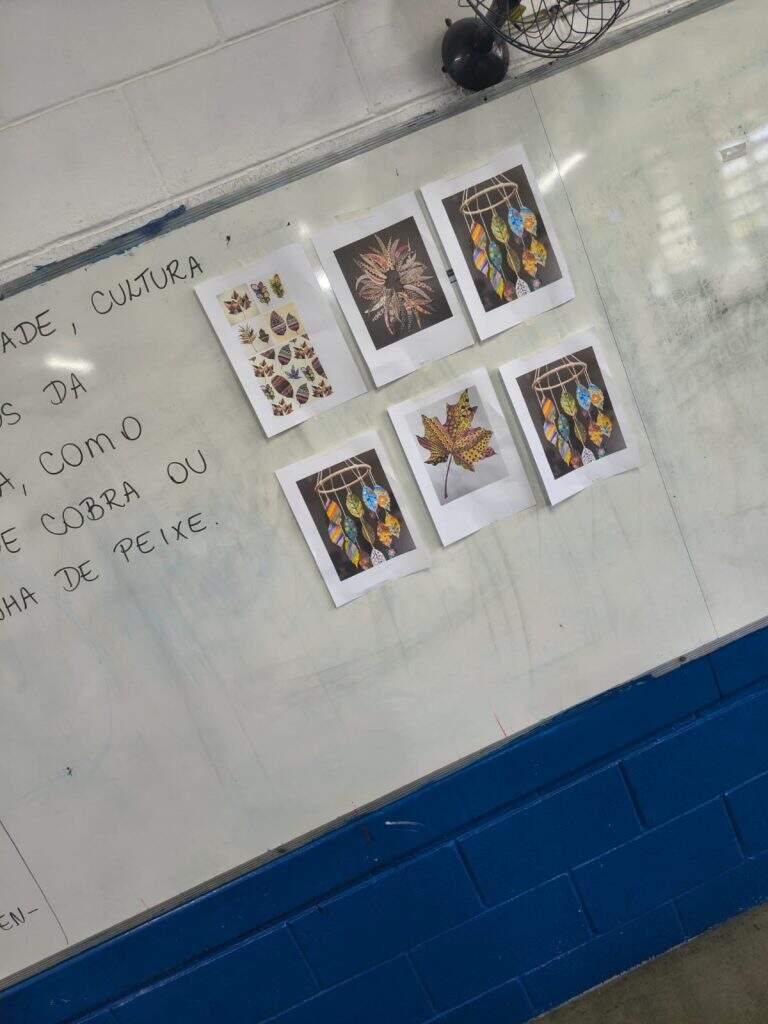 ADE, CULTURA
OS DA
A, COMO
DE COBRA OU
HA DE PEIXE.
EN-